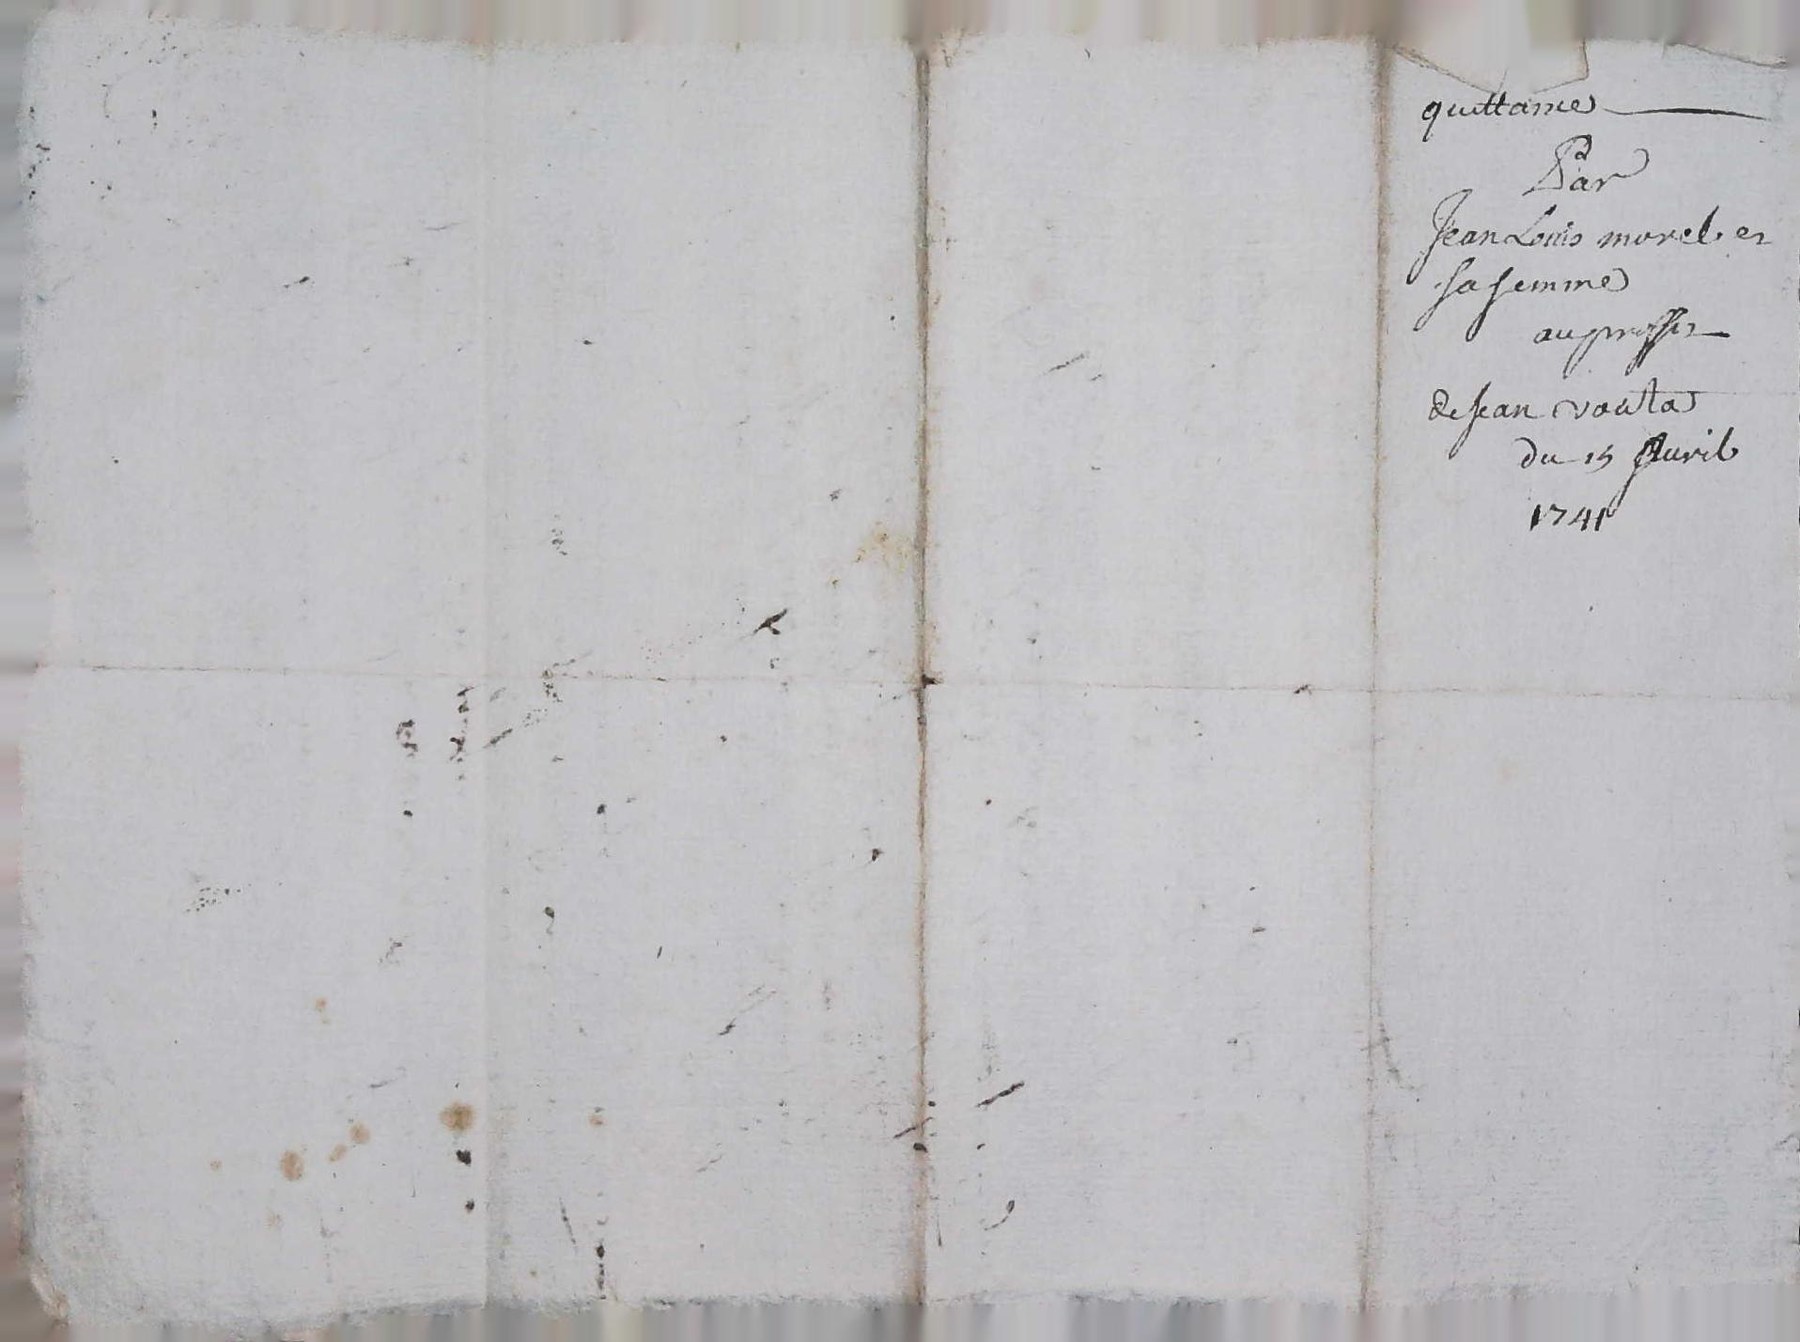 quittance
Par
Jean Louis morel et
sa femme
au proffit
de Jean vouta
du 15 Avril
1741